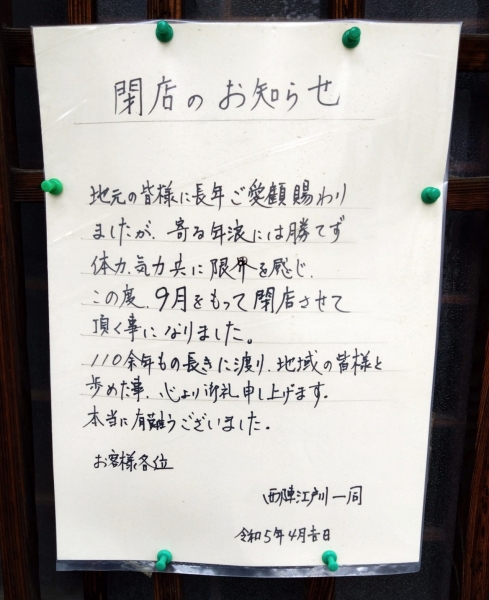 閉店のお知らせ
地元の皆様に長年ご愛顧賜わり
ましたが、寄る年波には勝てず
体力、気力共に限界を感じ、
この度、9月をもって閉店させて
頂く事になりました。
110余年もの長きに渡り、地域の皆様と
歩めた事、心より御礼申し上げます。
本当に有難うございました。
お客様各位
西陣江戸川一同
令和5年4月吉日